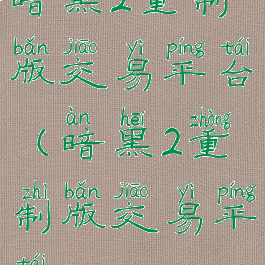 暗黑2重制
bǎn jiāo yì píng tái
版交易平台
àn hēi zhòng
(暗黑2重
zhì bǎn jiāo yì píng
制版交易平
tái